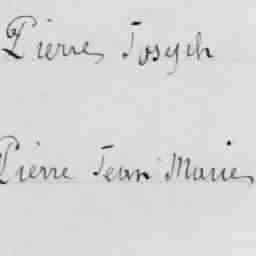 Pierre Joseph
Pierre Jean Marie